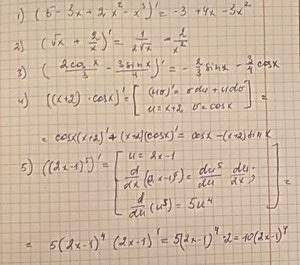 1) (5 - 3x + 2x² - x³)' = -3 + 4x - 3x²
2) (√x + 2/x)' = 1/(2√x) - 2/x²
3) (2cos x/3 - 3sin x/4)' = - 2/3 sin x - 3/4 cos x
4) ((x+2) · cos x)' = [(uv)' = v du + u dv
u = x+2, v = cos x] =
= cos x (x+2)' + (x+2)(cos x)' = cos x - (x+2) sin x
5) ((2x-1)⁵)' = [u = 2x-1
d/dx (2x-1)⁵ = du⁵/du · du/dx;
d/du (u⁵) = 5u⁴] =
= 5(2x-1)⁴ (2x-1)' = 5(2x-1)⁴ · 2 = 10(2x-1)⁴